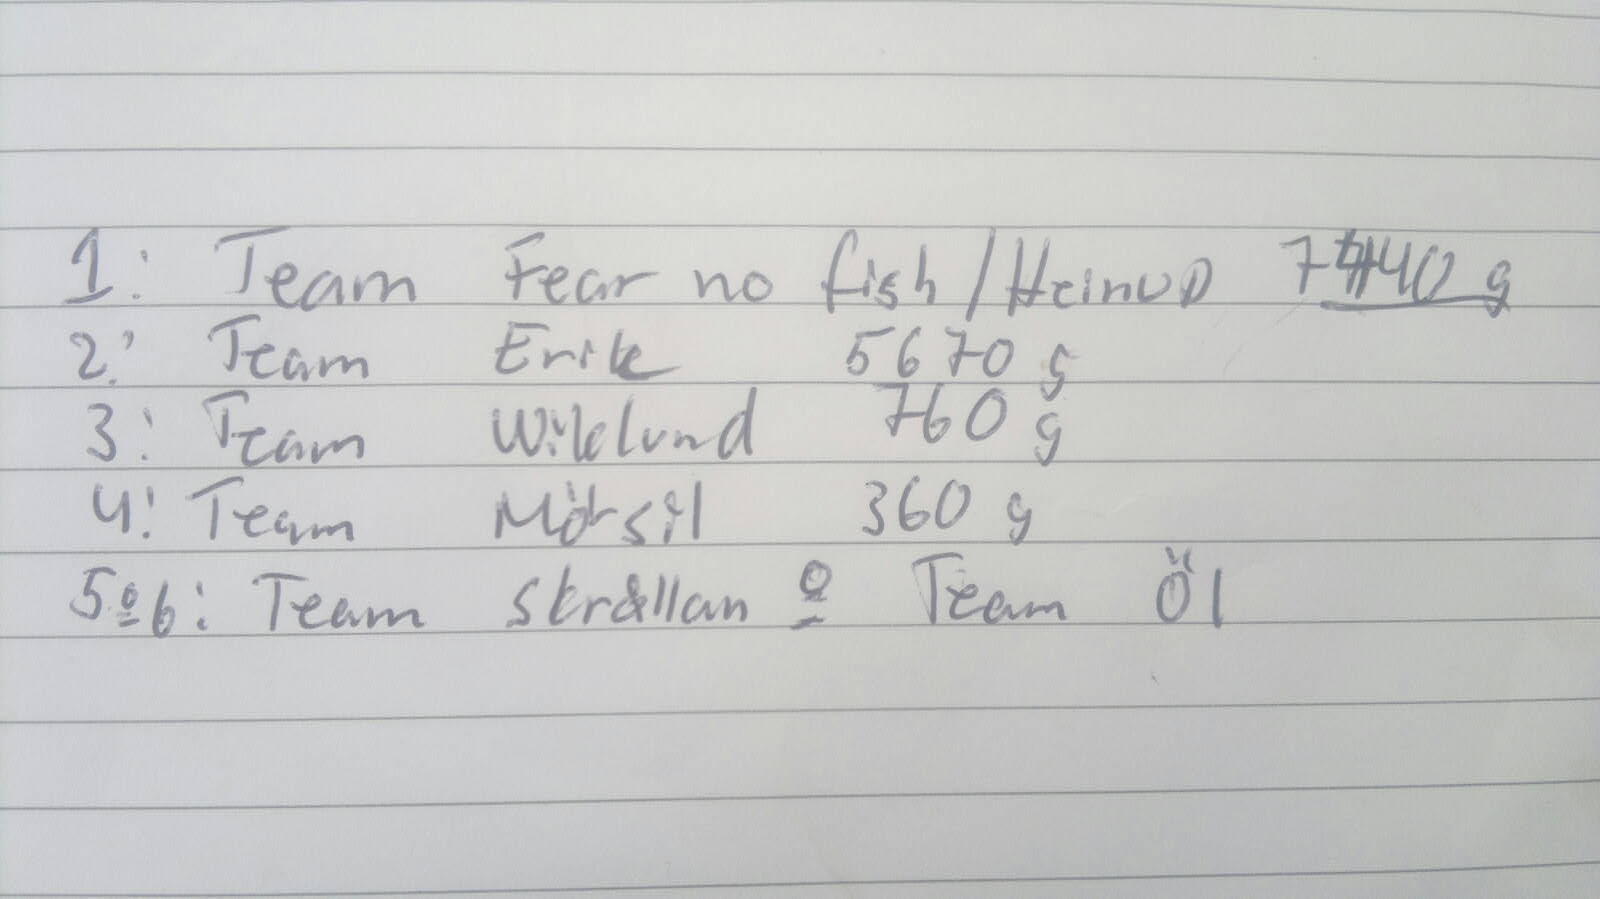 1: Team Fear no fish/Heinup 7440 g
2: Team Erik 5670 g
3: Team Wiklund 760 g
4: Team Mörsil 360 g
5 o 6: Team Skrållan o Team Öl